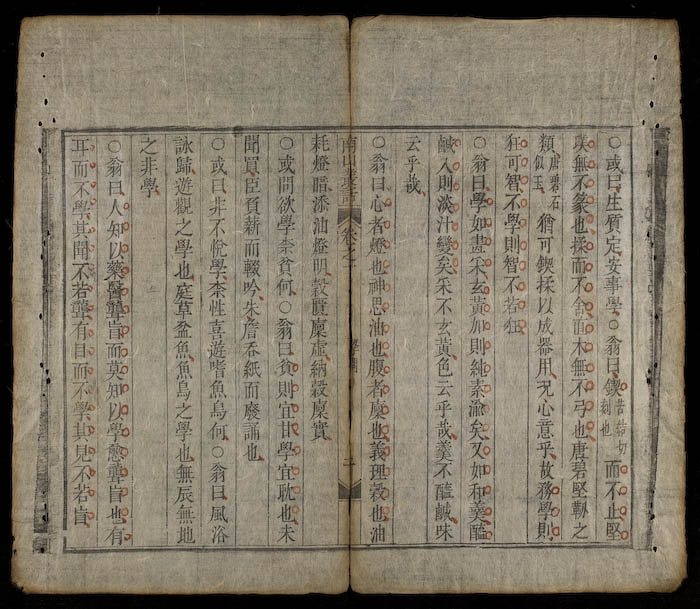 ○或曰生質定安事學○翁曰鍥苦結切刻也而不止堅
璞無不篆也揉而不舍苗木無不弓也唐碧堅韌之
類唐碧石似玉猶可鍥揉以成器用況心意乎故務學則
狂可智不學則智不若狂
○翁曰學如畫采玄黃加則純素渝矣又如和羮醢
鹹入則淡汁變矣采不玄黃色云乎哉羮不醢鹹味
云乎哉
○翁曰心者燈也神思油也腹者廩也義理穀也油
卷之一
二
耗燈暗添油燈明穀匱廩虛納穀廩實
○或問欲學柰貧何○翁曰貧則宜甘學宜耽也未
聞買臣負薪而輟吟朱詹吞紙而廢誦也
○或曰非不悅學柰性喜遊嗜魚鳥何○翁曰風浴
詠歸遊觀之學也庭草盆魚魚鳥之學也無辰無地
之非學
○翁曰人知以藥醫聾盲而莫知以學愈聾盲也有
耳而不學其聞不若聾有目而不學其見不若盲